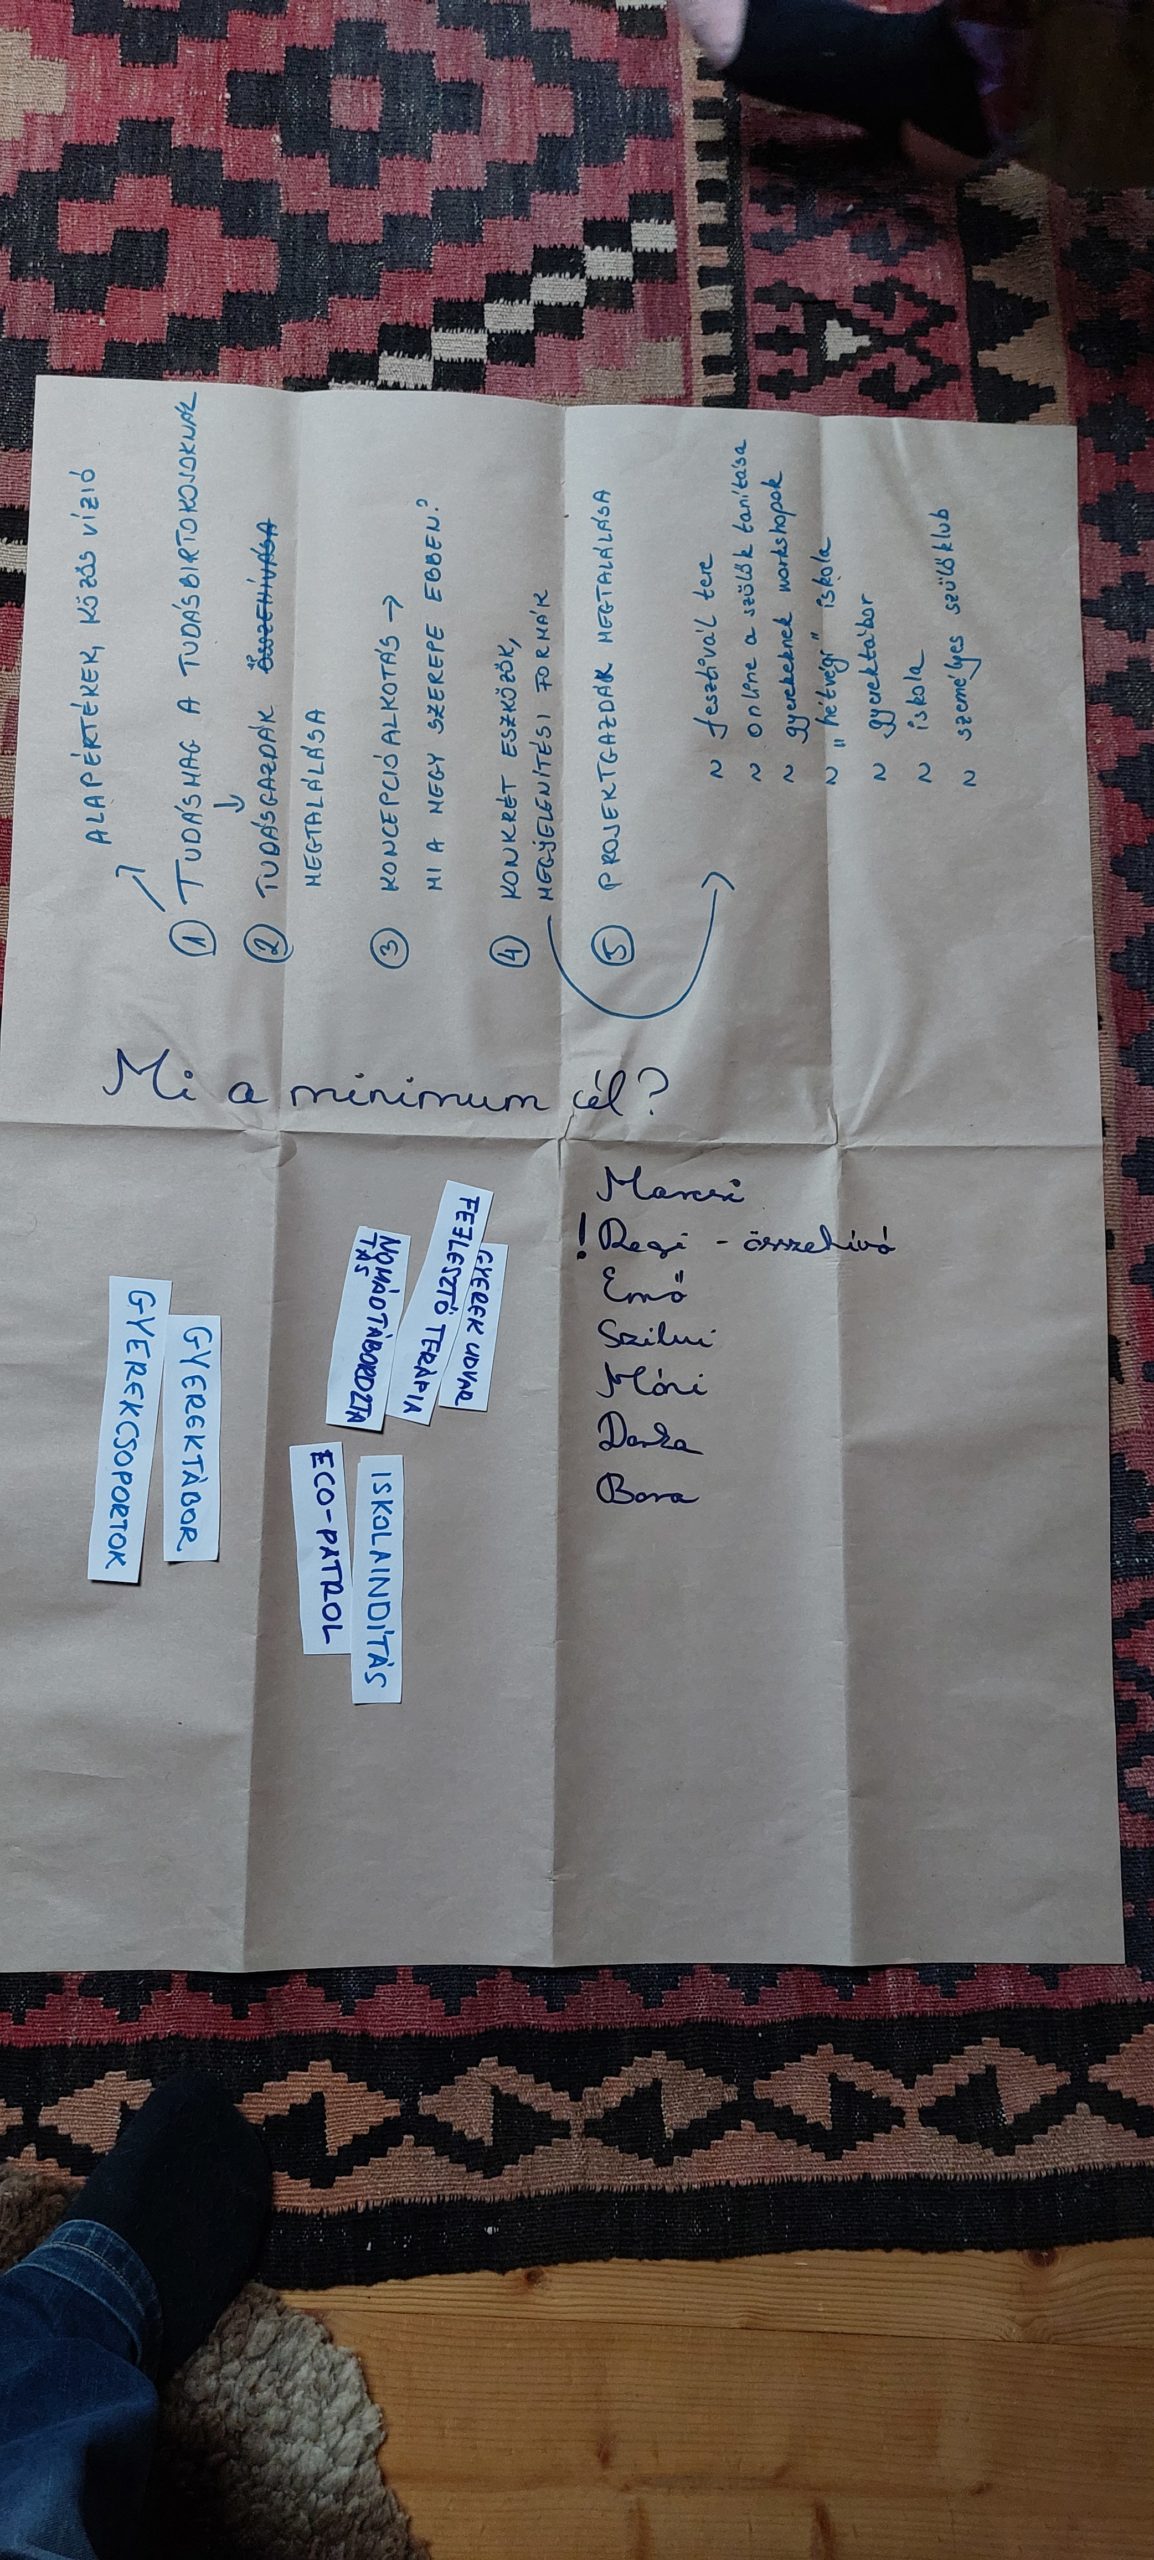 ALAPÉRTÉKEK, KÖZÖS VÍZIÓ
① TUDÁSMAG A TUDÁSBIRTOKOSOKNAK
② TUDÁSGAZDÁK ÖSSZEHÍVÁSA
MEGTALÁLÁSA
③ KONCEPCIÓALKOTÁS →
MI A NEGY SZEREPE EBBEN?
④ KONKRÉT ESZKÖZÖK,
MEGJELENÍTÉSI FORMÁK
⑤ PROJEKTGAZDÁK MEGTALÁLÁSA
~ fesztivál tere
~ online a szülők tanítása
~ gyerekeknek workshopok
~ "hétvégi" iskola
~ gyerektábor
~ iskola
~ személyes szülőklub
Mi a minimum cél?
Marcsi
! Regi - összehívó
Emő
Szilvi
Móni
Darka
Bora
GYEREK UDVAR
FEJLESZTŐ TERÁPIA
NOMÁDTÁBOROZTA
TÁS
ISKOLAINDÍTÁS
ECO-PATROL
GYEREKTÁBOR
GYEREKCSOPORTOK